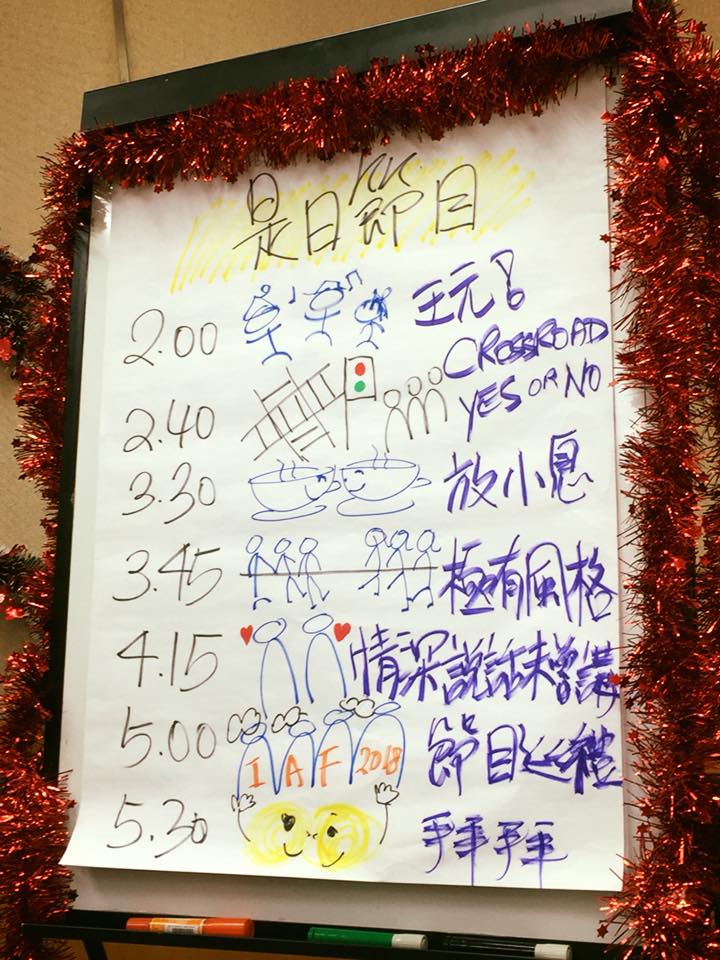 是日節目
2.00 玩!
2.40 CROSSROAD
YES OR NO
3.30 放小息
3.45 極有風格
4.15 情深說話未曾講
5.00 IAF 2018 節目巡禮
5.30 拜拜